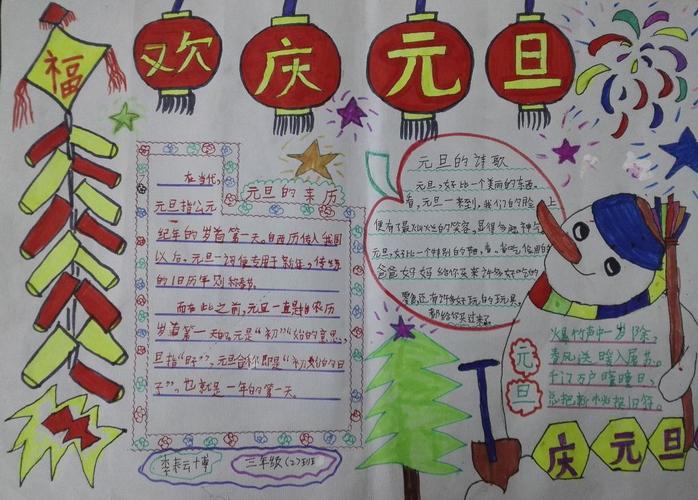 福
欢庆元旦
元旦的来历
在当代，
元旦指公元
纪年的岁首第一天。自西历传入我国
以后，元旦一词便专用于新年，传统
的旧历年则称春节
而在此之前，元旦一直指农历
岁首第一天的。元是“初”“始的意思，
旦指“日子”，元旦合称即是“初始的日
子”，也就是一年的第一天。
李耘博
三年级(2)班
元旦的诗歌
元旦，好比一个美丽的东西。
看，元旦一来到，我们的脸上
便有了最灿烂的笑容，显得
元旦，好比一个特别的节日，看，
爸爸妈妈给你买来许多好吃的
零食，还有许多好玩的玩具，
都给你买过来了。
元旦
爆竹声中一岁除，
春风送暖入屠苏。
千门万户曈曈日，
总把新桃换旧符。
庆元旦